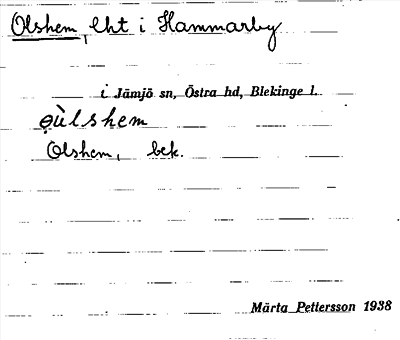 Olshem, lht i Hammarby
i Jämjö sn, Östra hd, Blekinge l.
ọùlshem
Olshem, bek.
Märta Pettersson 1938